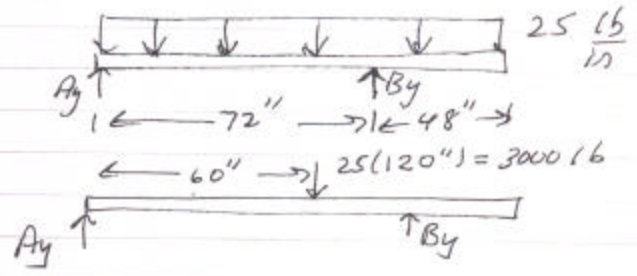 25 lb/in
Ay By
72" 48"
60" 25(120") = 3000 lb
Ay By